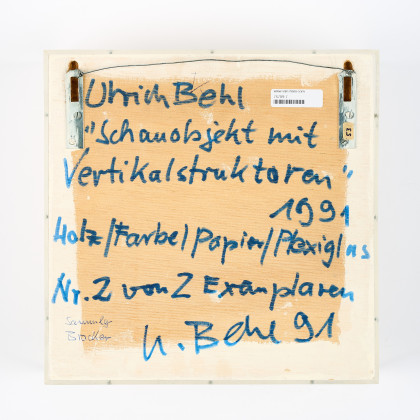 Ulrich Behl
"Schauobjekt mit
Vertikalstruktoren"
1991
Holz/Farbe/Papier/Plexiglas
Nr. 2 von 2 Exemplaren
U. Behl 91
Sammler